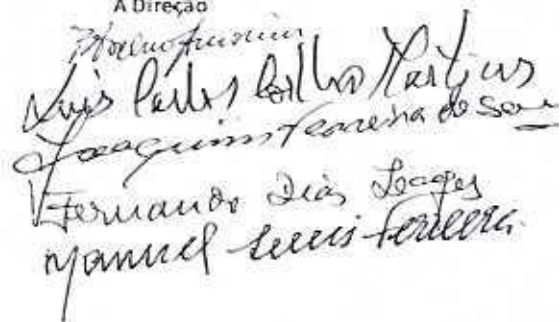 A Direção
Luis Carlos Coelho Martins
Joaquim Ferreira de Sousa
Fernando Dias Lages
Manuel Ferreira